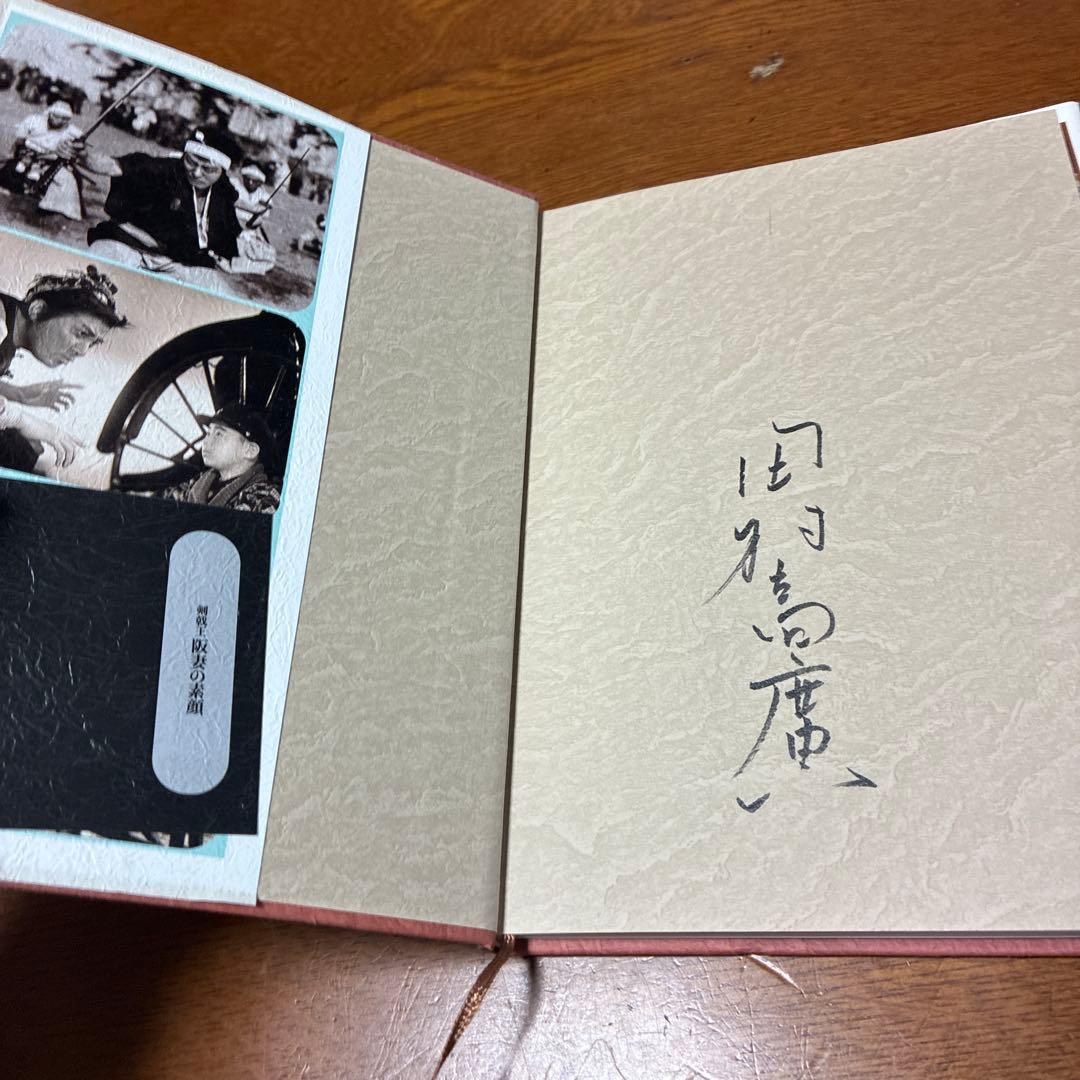 剣戟王 阪妻の素顔
田村高廣